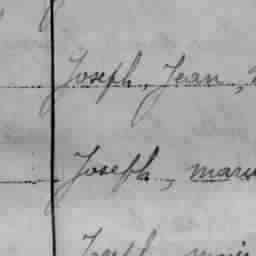 Joseph, Jean,
Joseph, marie
Joseph marie